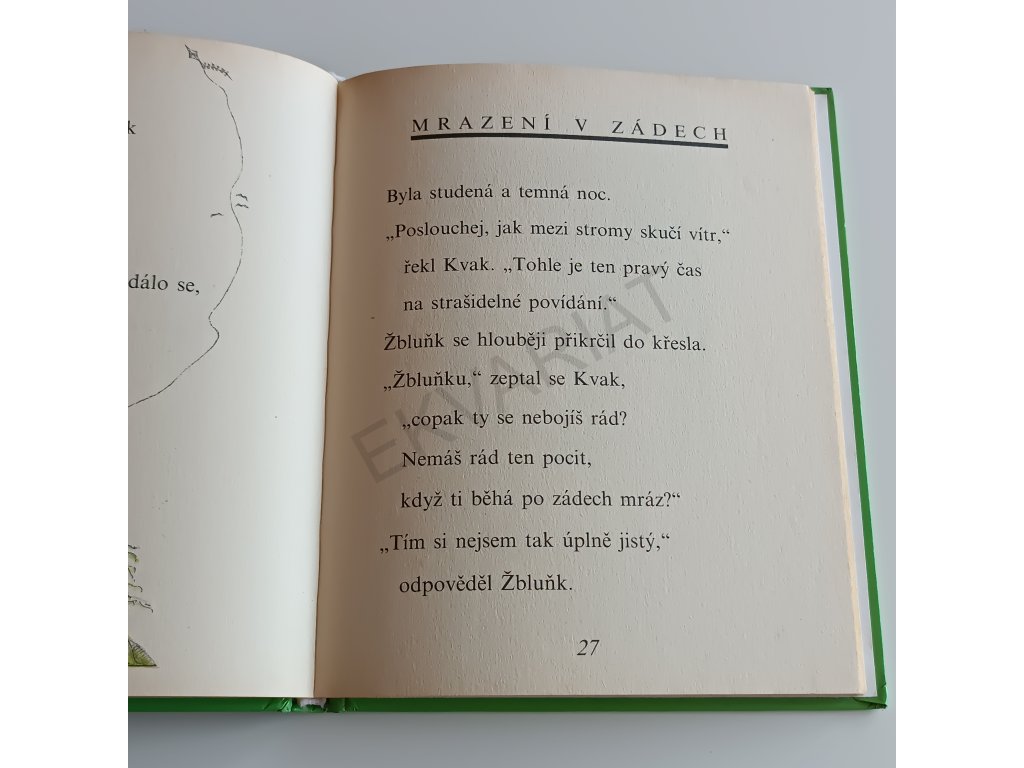 k
dálo se,
MRAZENÍ V ZÁDECH
Byla studená a temná noc.
„Poslouchej, jak mezi stromy skučí vítr,“
řekl Kvak. „Tohle je ten pravý čas
na strašidelné povídání.“
Žbluňk se hlouběji přikrčil do křesla.
„Žbluňku,“ zeptal se Kvak,
„copak ty se nebojíš rád?
Nemáš rád ten pocit,
když ti běhá po zádech mráz?“
„Tím si nejsem tak úplně jistý,“
odpověděl Žbluňk.
27
EKVARIAT